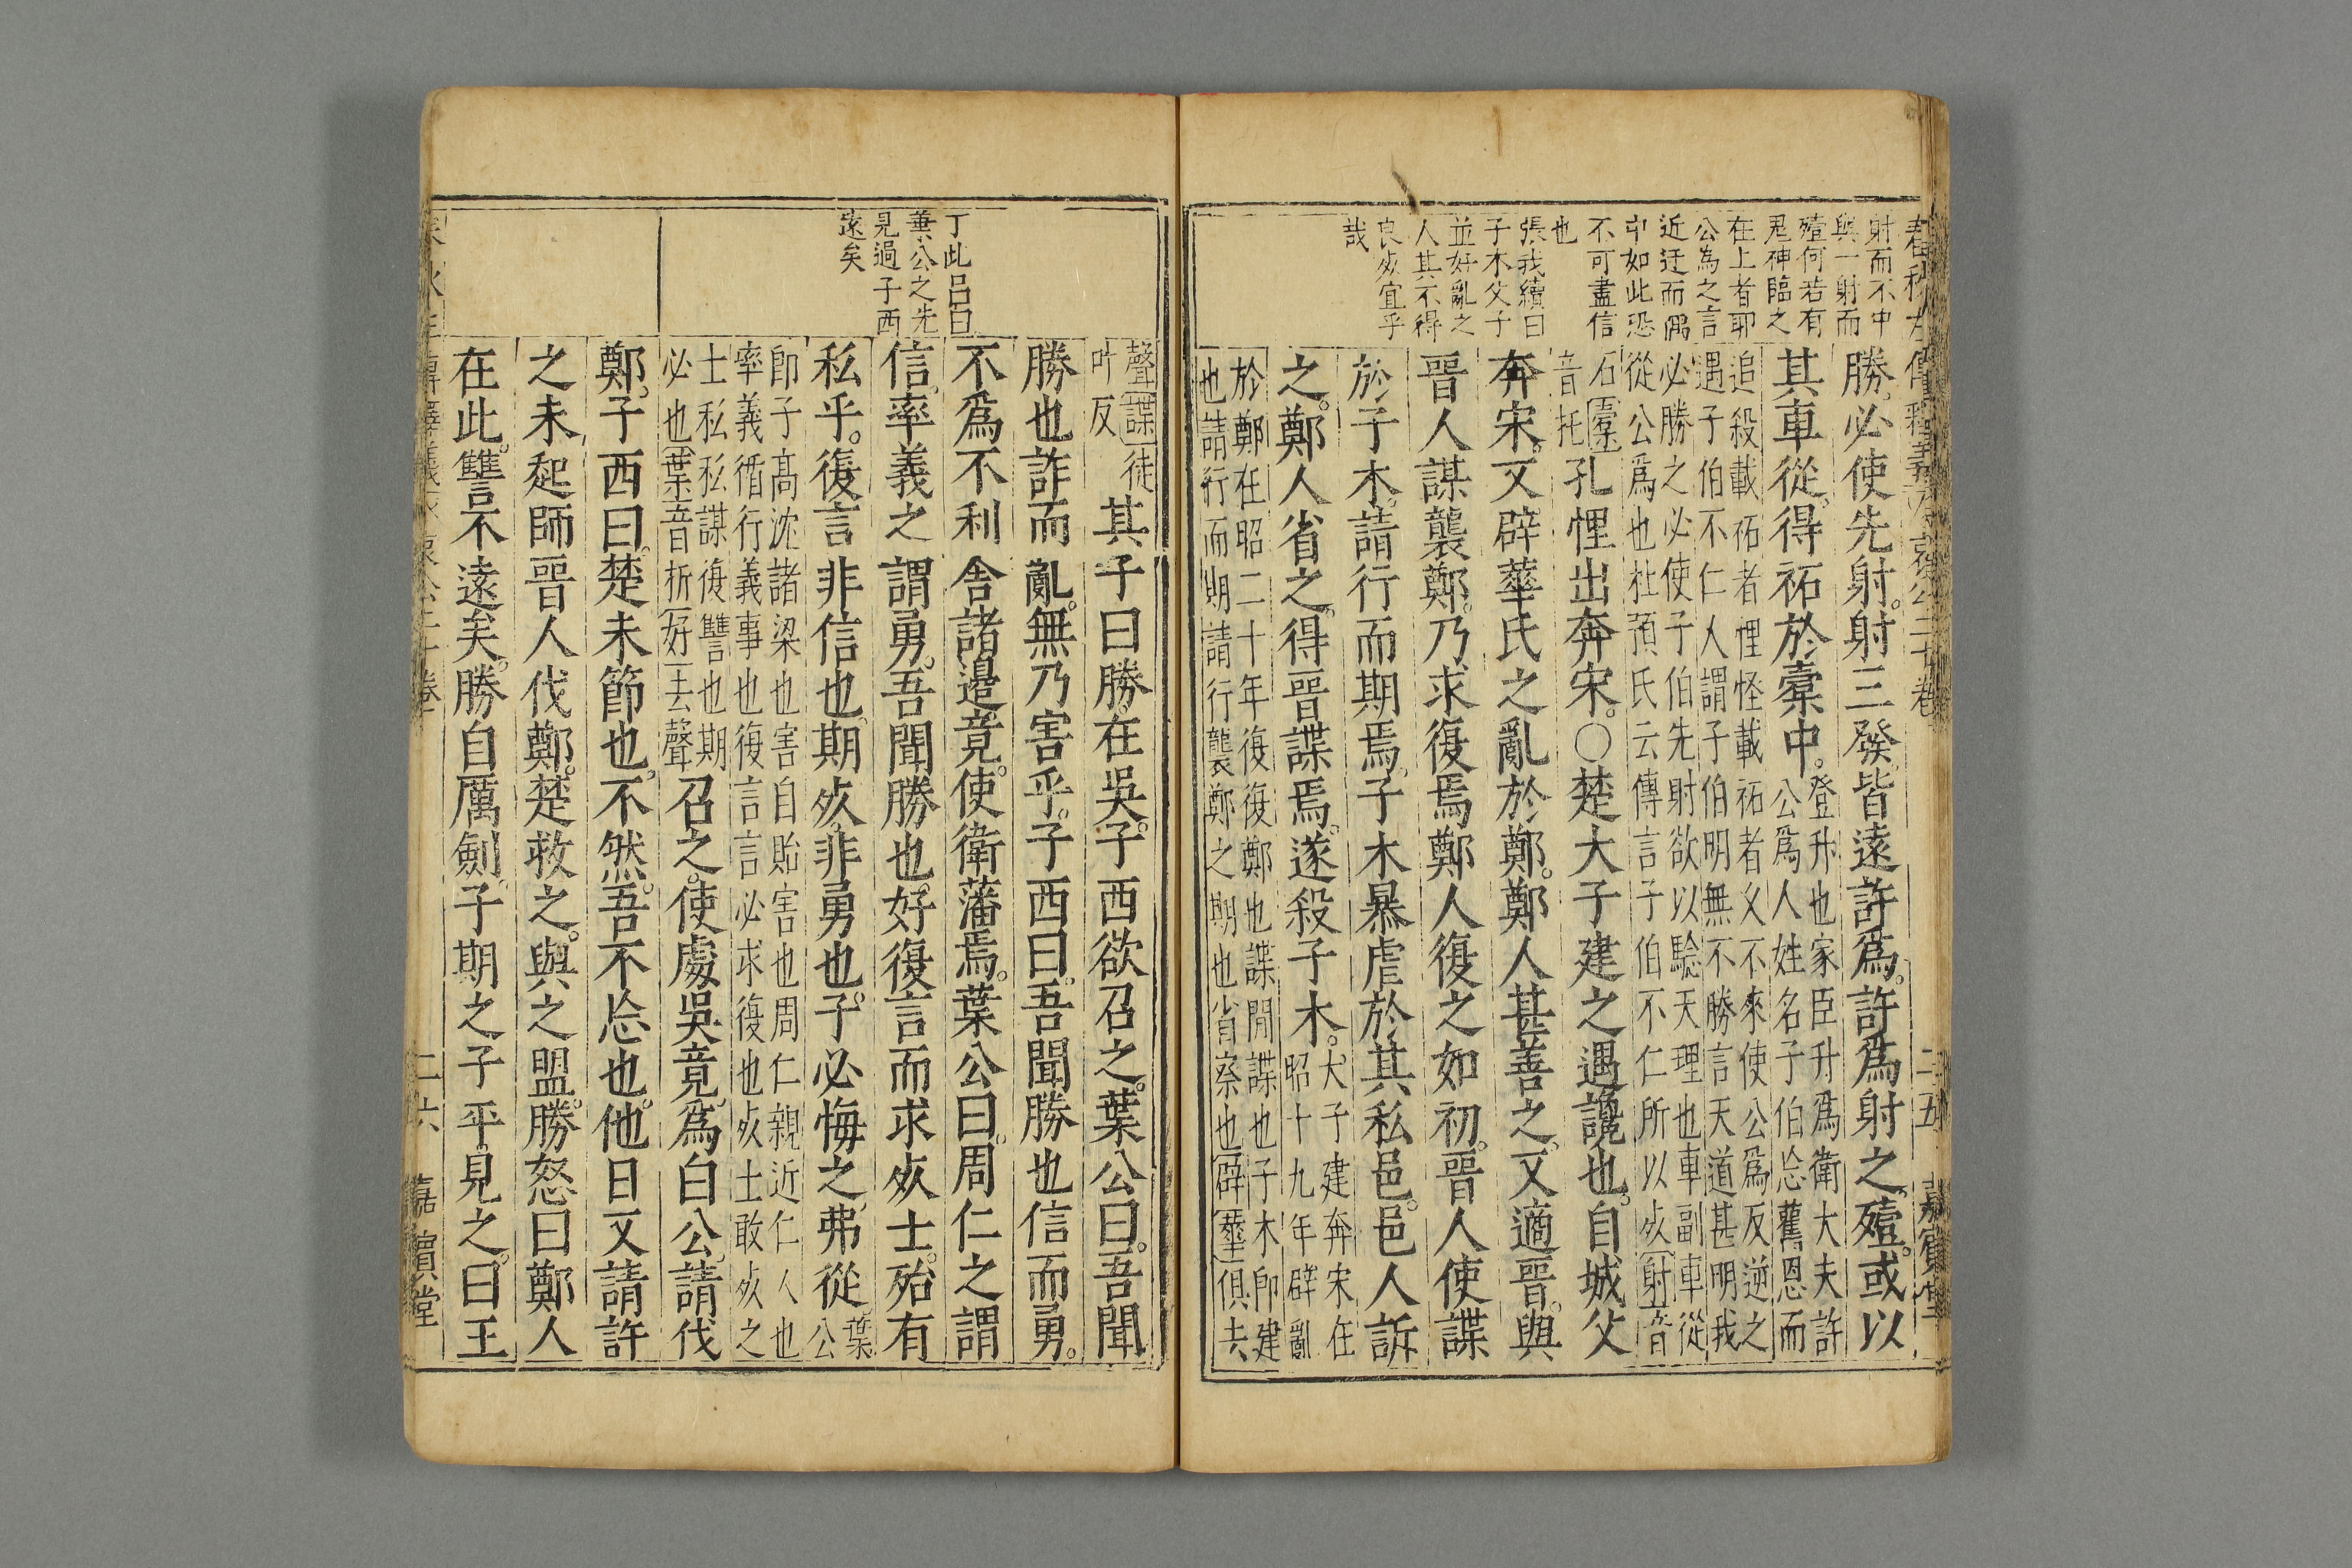 射而不中
與一射而
殪何若有
鬼神臨之
在上者耶
公為之言
近迂而偶
中如此恐
不可盡信
也
張我續曰
子木父子
並好亂之
人其不得
良死宜乎
哉
勝必使先射射三發皆遠許爲許爲射之殪或以
其車從得祏於橐中
登升也家臣升爲衛大夫許
公爲人姓名子伯忩舊恩而
追殺載祏者悝怪載祏者乆不來使公爲反逆之
遇子伯不仁人謂子伯明無不勝言天道甚明我
必勝之必使子伯先射欲以驗天理也車副車從
從公爲也杜預氏云傳言子伯不仁所以死射音
石橐
音托
孔悝出奔宋○楚大子建之遇讒也自城父
奔宋又辟華氏之亂於鄭鄭人甚善之又適晉與
晉人謀襲鄭乃求復焉鄭人復之如初晉人使諜
於子木請行而期焉子木暴虐於其私邑邑人訴
之鄭人省之得晉諜焉遂殺子木
大子建奔宋在
昭十九年辟亂
於鄭在昭二十年復復鄭也諜間諜也子木即建
也請行而期請行襲鄭之期也省察也辟華俱去
二五
嘉賓堂
聲諜徒
叶反
其子曰勝在吳子西欲召之葉公曰吾聞
勝也詐而亂無乃害乎子西曰吾聞勝也信而勇
不爲不利舍諸邉竟使衛藩焉葉公曰周仁之謂
信率義之謂勇吾聞勝也好復言而求死士殆有
私乎復言非信也期死非勇也子必悔之弗從
葉
公
即子高沈諸梁也害自貽害也周仁親近仁人也
率義循行義事也復言言必求復也死士敢死之
士私私謀復讐也期
必也葉音折好去聲
召之使處吳竟爲白公請伐
鄭子西曰楚未節也不然吾不忩也他日又請許
之未起師晉人伐鄭楚救之與之盟勝怒曰鄭人
在此讐不遠矣勝自厲劍子期之子平見之曰王
丁此呂曰
葉公之先
見過子西
遠矣
二六
嘉賓堂